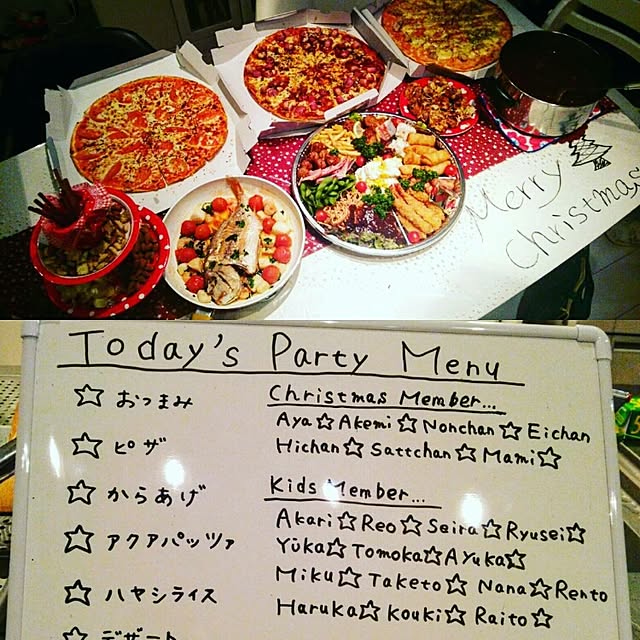 Merry
Christmas
Today's Party Menu
☆ おつまみ
☆ ピザ
☆ からあげ
☆ アクアパッツァ
☆ ハヤシライス
☆ デザート
Christmas Member...
Aya☆Akemi☆Nonchan☆Eichan
Hichan☆Sattchan☆Mami☆
Kids Member...
Akari☆Reo☆Seira☆Ryusei☆
Yūka☆Tomoka☆Ayuka☆
Miku☆Taketo☆Nana☆Rento
Haruka☆Kouki☆Raito☆